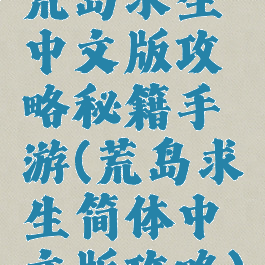 荒岛求生
中文版攻
略秘籍手
游(荒岛求
生简体中
文版攻略)